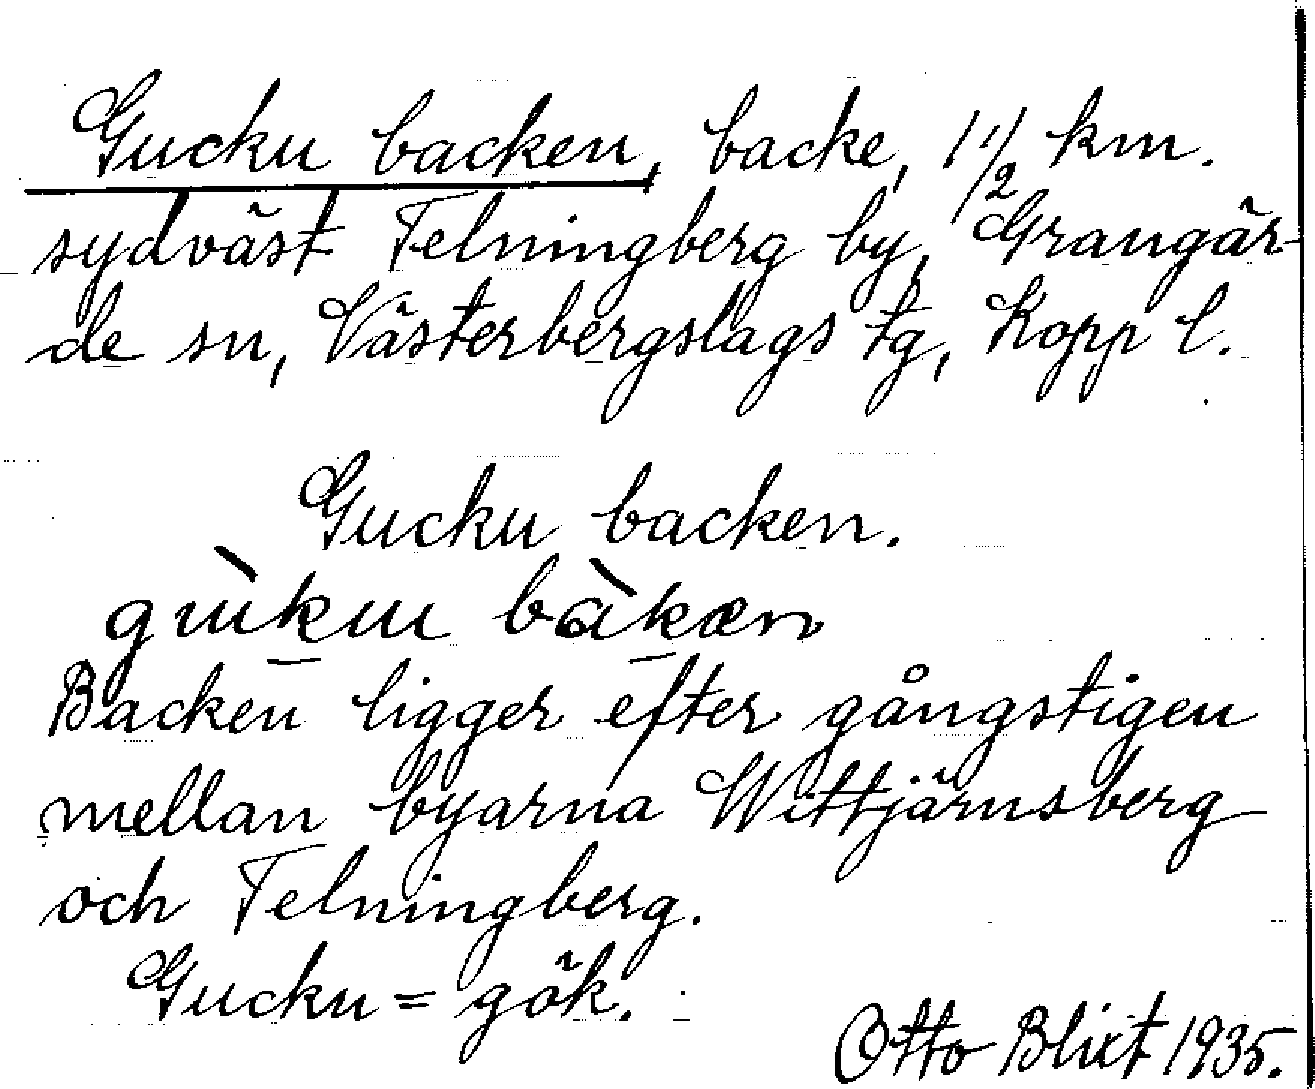 Gucku backen, backe, 1 1/2 km.
sydväst Telningberg by, Grangär-
de sn, Västerbergslags tg, Kopp l.
Gucku backen.
gùkɯ bàkæn
Backen ligger efter gångstigen
mellan byarna Wittjärnsberg
och Telningberg.
Gucku = gök.
Otto Blixt 1935.